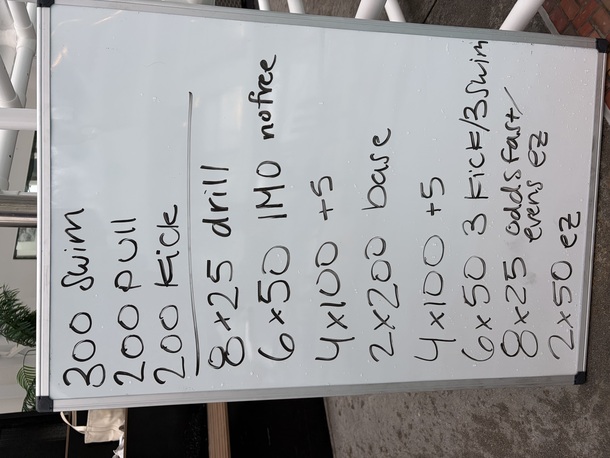 300 Swim
200 PUll
200 Kick
8x25 drill
6x50 IMO nofree
4x100 +5
2x200 base
4x100 +5
6x50 3 Kick/3Swim
8x25 odds fast/
evens ez
2x50 ez